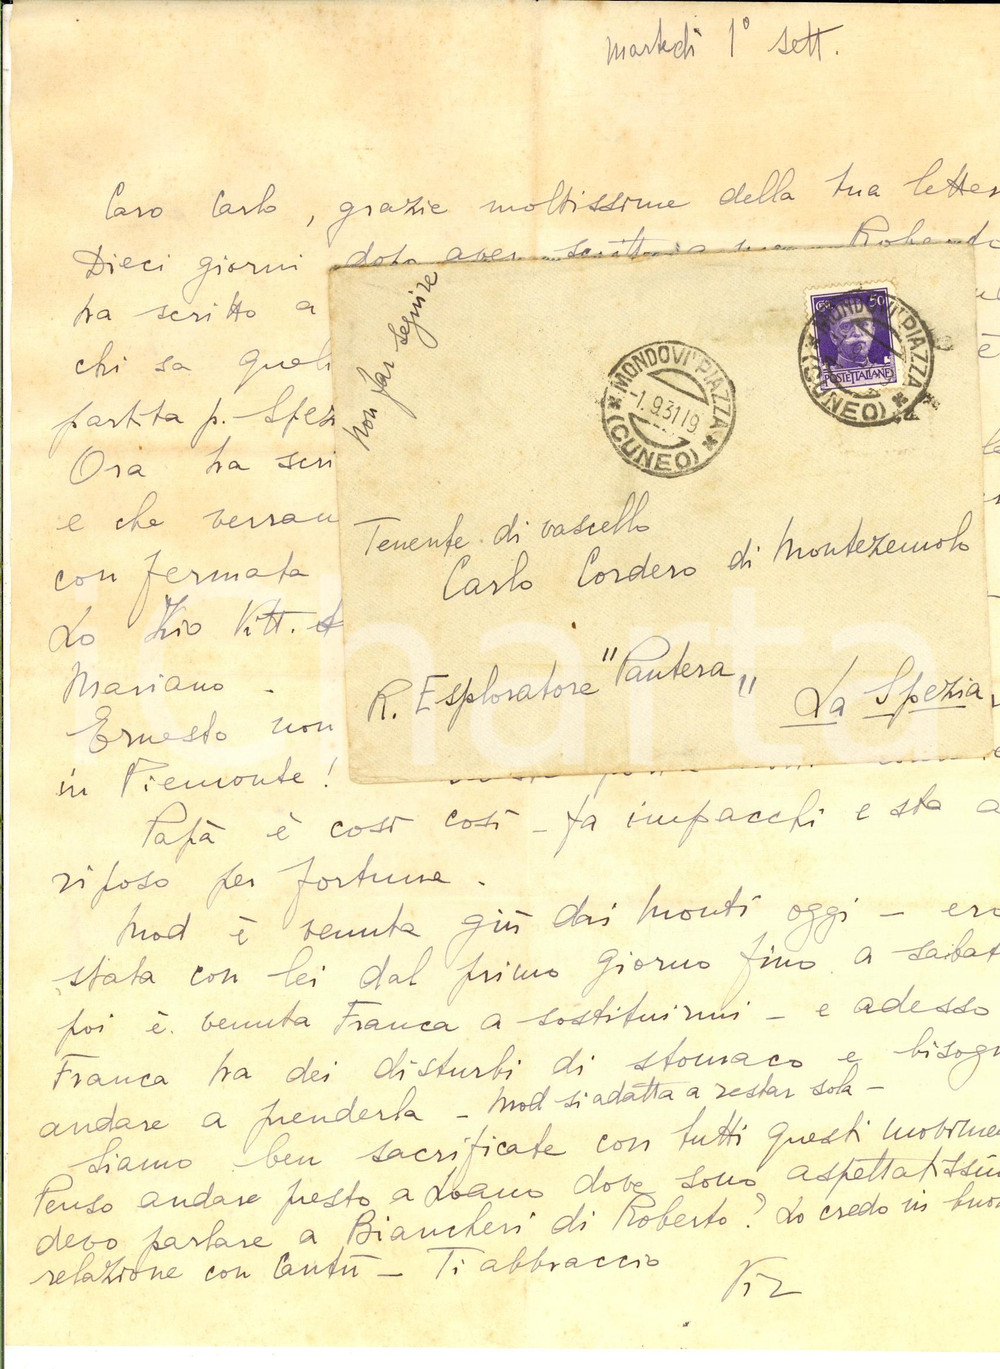 martedì 1° sett.
Caro Carlo, grazie moltissime della tua letter
Dieci giorni dopo aver
ha scritto a
chi sa quali
partita p. Spez
Ora ha scri
e che verran
con fermata
Lo Zio Vitt.
Mariano -
Ernesto non
in Piemonte!
Papà è così così - fa impacchi e sta a
riposo per fortuna.
Mod è venuta giù dai monti oggi - ero
stata con lei dal primo giorno fino a sabat
poi è venuta Franca a sostituirmi - e adesso
Franca ha dei disturbi di stomaco e bisogn
andare a prenderla - Mod si adatta a restar sola -
Siamo ben sacrificate con tutti questi movimen
Penso andare presto a Loano dove sono aspettatissim
devo parlare a Biancheri di Roberto? Lo credo in buon
relazione con Cantù - Ti abbraccio
Viz
Non far seguire
MONDOVI' PIAZZA
-1.9.31 19
(CUNEO)
50
POSTE ITALIANE
MONDOVI' PIAZZA
(CUNEO)
Tenente di vascello
Carlo Cordero di Montezemolo
R. Esploratore "Pantera"
La Spezia